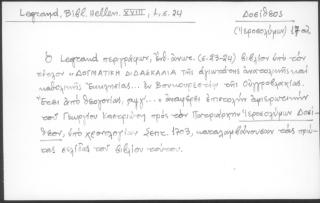 Legrand, Bibl. Hellen. XVIII, 1, σ. 24
Δοσίθεος
(Ἱεροσολύμων) 1702
Ὁ Legrand περιγράφων, ἔνθ. ἀνωτ. (σ. 23-24) βιβλίον ὑπὸ τὸν
τίτλον «ΔΟΓΜΑΤΙΚΗ ΔΙΔΑΣΚΑΛΙΑ τῆς ἁγιωτάτης ἀνατολικῆς καὶ
καθολικῆς Ἐκκλησίας... ἐν Βουκουρεστίῳ τῆς Οὑγγροβλαχίας.
Ἔτει ἀπὸ θεογονίας, αψγʹ...» ἀναφέρει ἐπιστολὴν ἀφιερωτικὴν
τοῦ Γεωργίου Καστριώτη πρὸς τὸν Πατριάρχην Ἱεροσολύμων Δοσί-
θεον, ὑπὸ χρονολογίαν Σεπτ. 1703, καταλαμβάνουσαν τὰς πρώ-
τας σελίδας τοῦ βιβλίου τούτου.